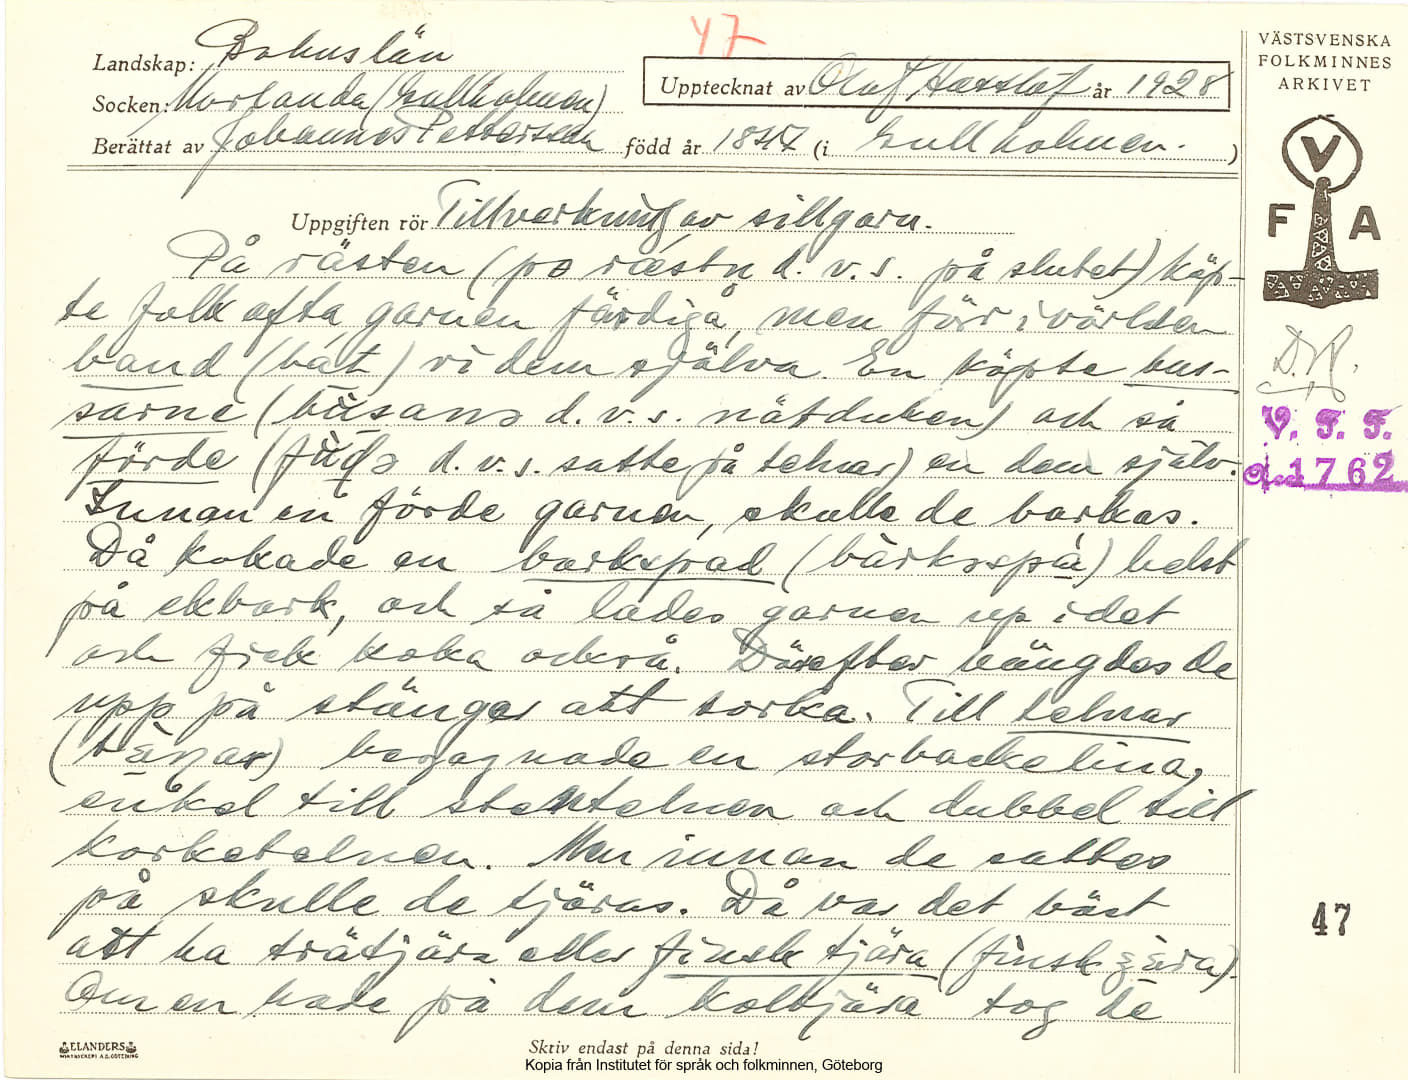 47
Landskap: Bohuslän
Socken: Morlanda (Gullholmen)
Upptecknat av Olof Hasslöf år 1928
Berättat av Johannes Pettersson född år 1847 (i Gullholmen. )
VÄSTSVENSKA
FOLKMINNES
ARKIVET
V
F A
Uppgiften rör Tillverkning av sillgarn.
På rästen (po ræstn d.v.s. på slutet) köp-
te folk ofta garnen färdiga, men förr i världen
band (bát) vi dem själva. En köpte bus-
sarne (bùsano d.v.s. nätduken) och så
förde (      d.v.s. satte på telnar) en dem själv.
Innan en förde garnen, skulle de barkas.
Då kokade en barkspad (bàrkospa) helst
på ekbark, och så lades garnen up i det
och fick koka också. Därefter hängdes de
upp på stänger att torka. Till telnar
(tænar) begagnade en storbackelina,
enkel till stentelnen och dubbel till
korketelnen. Men innan de sattes
på skulle de tjäras. Då var det bäst
att ha trätjära eller finsk tjära (finsk      ).
Om en hade på dem koltjära tog de
D.H.
V. F. F.
1762
47
ELANDERS
Skriv endast på denna sida!
Kopia från Institutet för språk och folkminnen, Göteborg